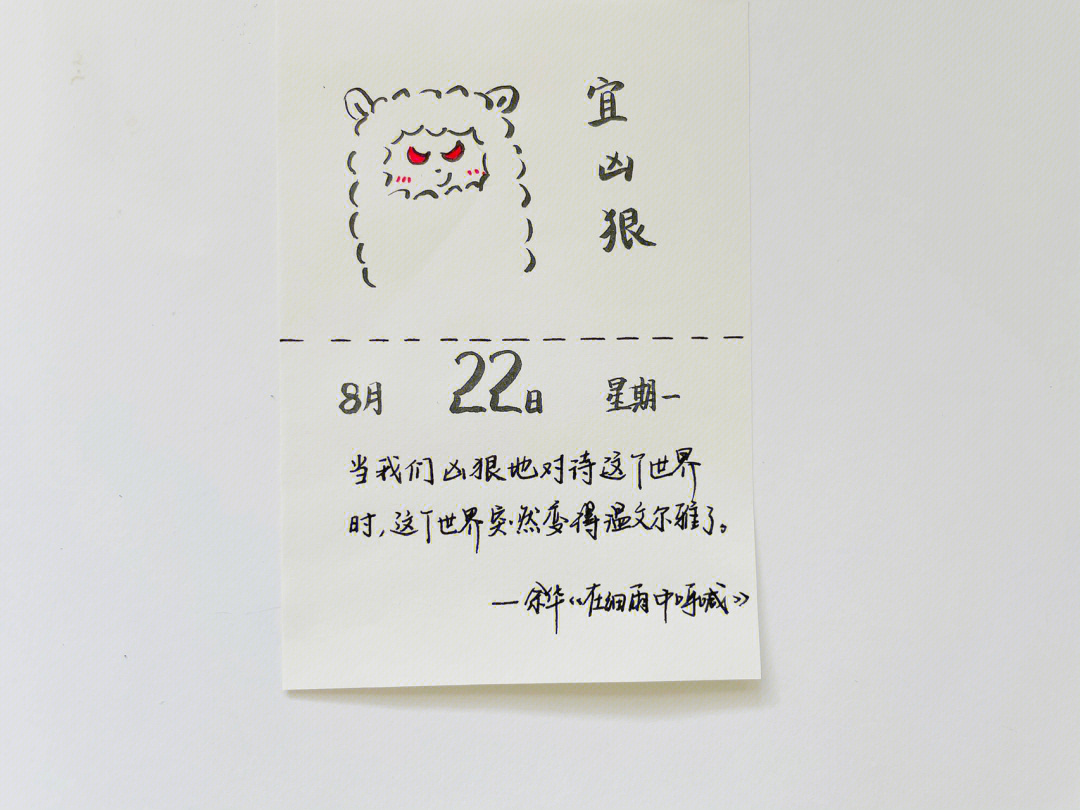 宜凶狠
8月 22日 星期一
当我们凶狠地对待这个世界
时,这个世界突然变得温文尔雅了。
—余华《在细雨中呼喊》